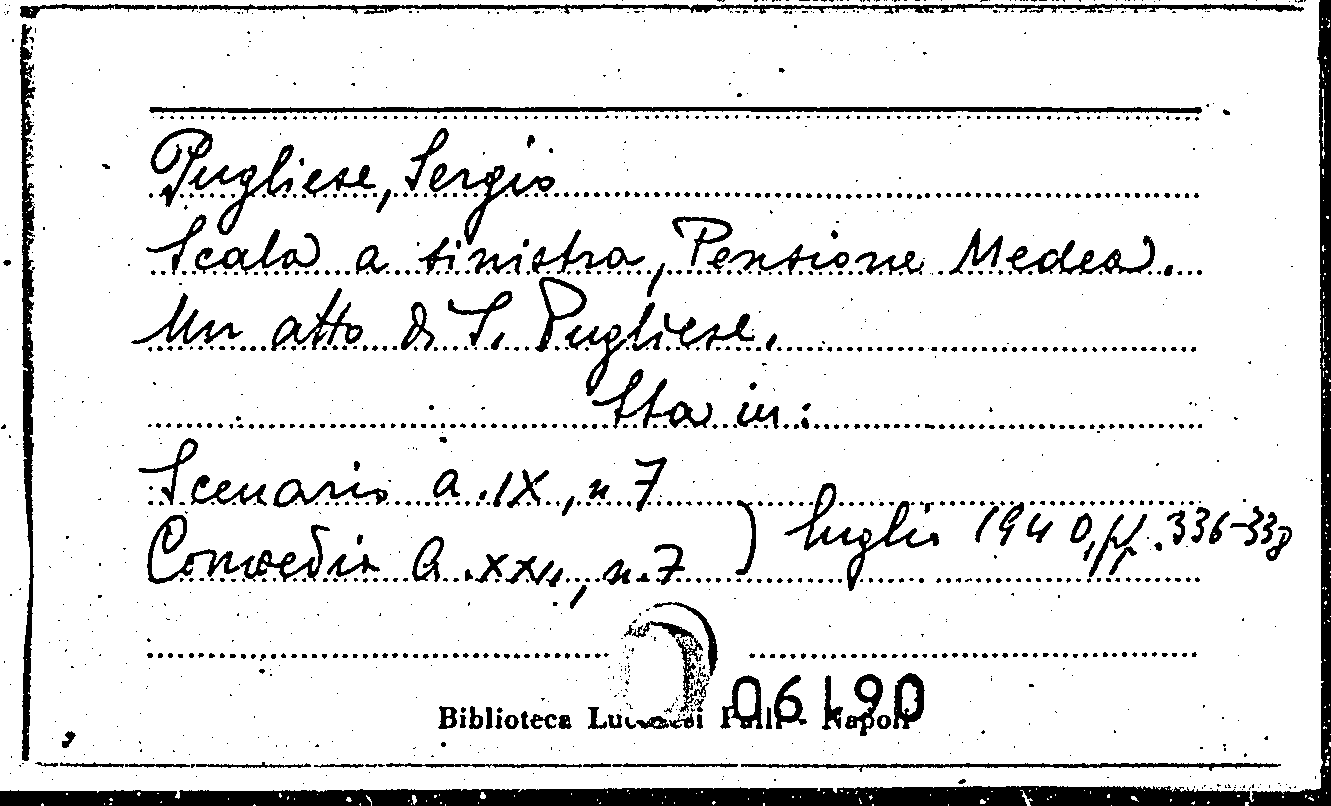 Pugliese, Sergio
Scala a sinistra, Pensione Medea.
Un atto di S. Pugliese.
Sta in:
Scenario a. IX, n 7
Comoedia a. XXII, n. 7
) luglio 1940, pp. 336-338
06190
Biblioteca Lucchesi Palli - Napoli